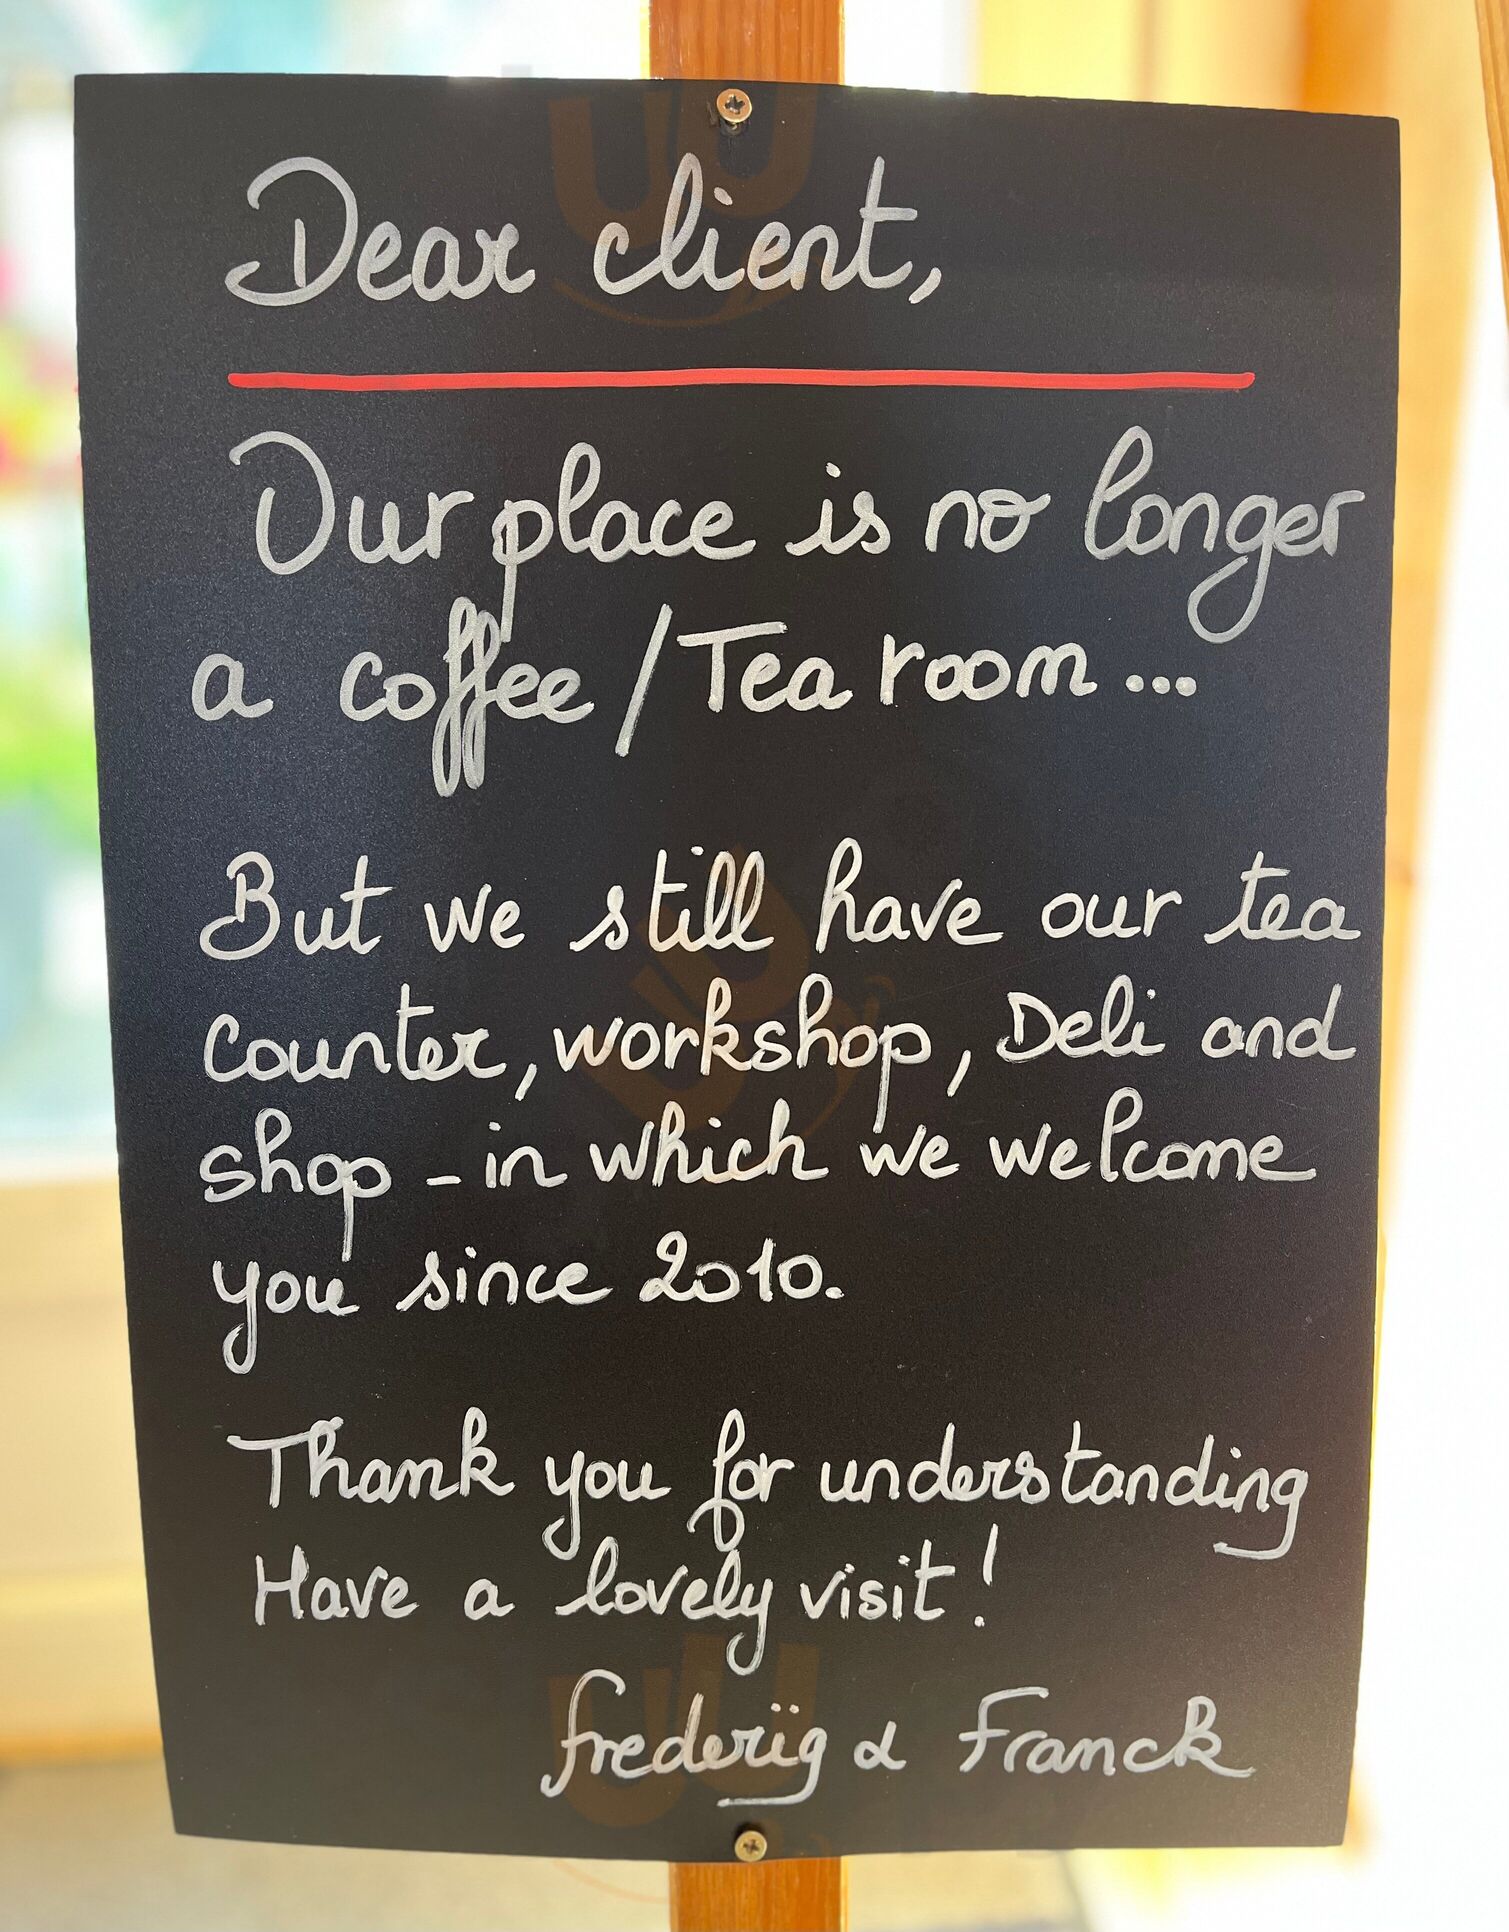 Dear client,
Our place is no longer
a coffee / Tea room...
But we still have our tea
counter, workshop, Deli and
shop - in which we welcome
you since 2010.
Thank you for understanding
Have a lovely visit!
frederïg & Franck